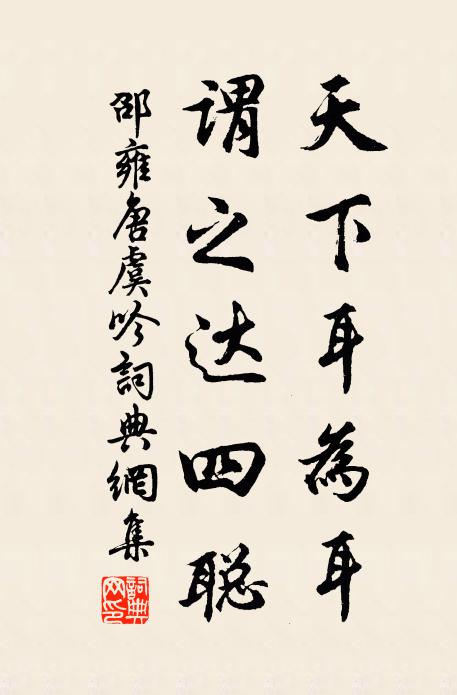 天下耳為耳
謂之达四聪
邵雍唐虞吟詞典網集
詞典網印